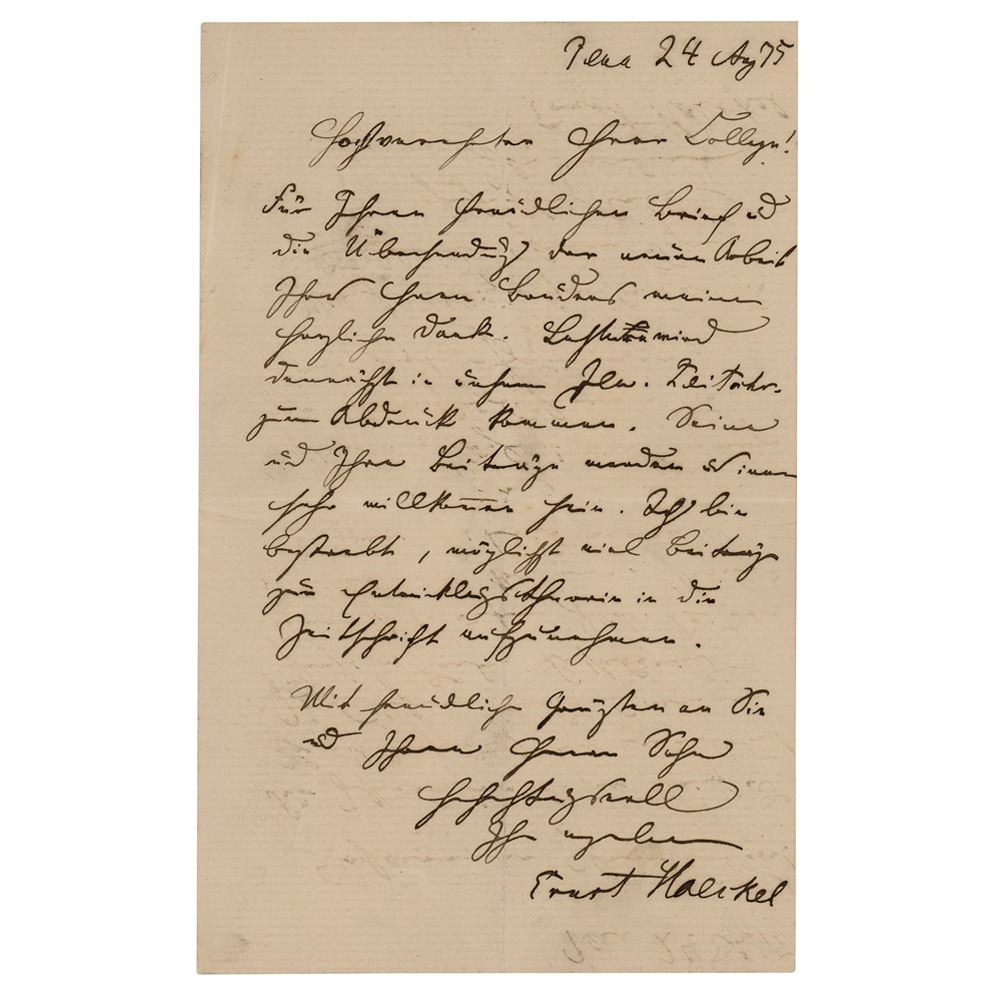 Jena 24 Aug 75
Hochverehrter Herr College!
Für Ihren freundlichen Brief und
die Übersendung der neuen Arbeit
Ihres Herrn Bruders meinen
herzlichen Dank. Letztere wird
demnächst in unserer Jen. Zeitschr.
zum Abdruck kommen. Seine
und Ihre Beiträge werden uns immer
sehr willkommen sein. Ich bin
bestrebt, möglichst viel Beiträge
zur Entwicklungstheorie in die
Zeitschrift aufzunehmen.
Mit freundlichen Grüßen an Sie
und Ihren Herrn Sohn
hochachtungsvoll
Ihr ergebener
Ernst Haeckel